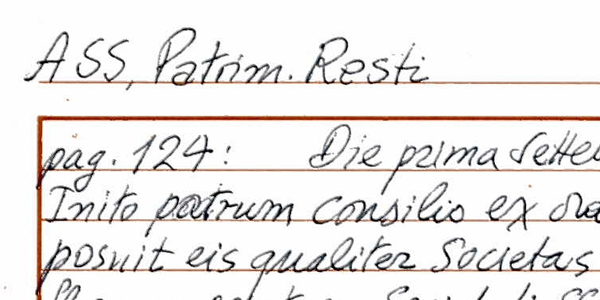 ASS, Patrim. Resti
pag. 124: Die prima
Inito patrum consilio ex
posuit eis qualiter Societas